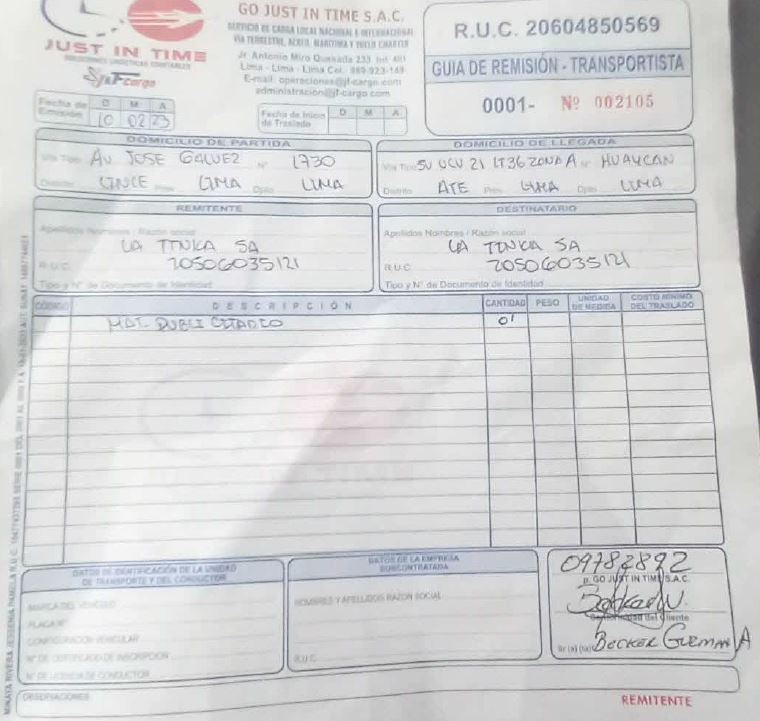 GO JUST IN TIME S.A.C.
JUST IN TIME
SOLUCIONES LOGISTICAS CONFIABLES
J&F cargo
SERVICIO DE CARGA LOCAL NACIONAL E INTERNACIONAL
VIA TERRESTRE, AEREO, MARITIMA Y VUELO CHARTER
Jr. Antonio Miro Quesada 233 Int. 401
Lima - Lima - Lima Cel. 989-923-149
E-mail: operaciones@jf-cargo.com
administracion@jf-cargo.com
R.U.C. 20604850569
GUIA DE REMISIÓN - TRANSPORTISTA
0001- Nº 002105
Fecha de Emisión D M A
10 02 23
Fecha de Inicio de Traslado D M A
DOMICILIO DE PARTIDA
Vía Tipo AV JOSE GALVEZ Nº 1730
Distrito LINCE Prov. LIMA Dpto. LIMA
DOMICILIO DE LLEGADA
Vía Tipo SV UCV 21 LT36 ZONA A Nº HUAYCAN
Distrito ATE Prov. LIMA Dpto. LIMA
REMITENTE
Apellidos Nombres / Razón social
LA TINKA SA
R.U.C. 20506035121
Tipo y N° de Documento de Identidad
DESTINATARIO
Apellidos Nombres / Razón social
LA TINKA SA
R.U.C. 20506035121
Tipo y N° de Documento de Identidad
CÓDIGO DESCRIPCIÓN CANTIDAD PESO UNIDAD DE MEDIDA COSTO MÍNIMO DEL TRASLADO
MAT. PUBLICITARIO 01
DATOS DE IDENTIFICACIÓN DE LA UNIDAD DE TRANSPORTE Y DEL CONDUCTOR
MARCA DEL VEHÍCULO
PLACA N°
CONFIGURACIÓN VEHICULAR
N° DE CERTIFICADO DE INSCRIPCIÓN
N° DE LICENCIA DE CONDUCTOR
DATOS DE LA EMPRESA SUBCONTRATADA
NOMBRES Y APELLIDOS RAZÓN SOCIAL
R.U.C.
09782892
p. GO JUST IN TIME S.A.C.
Conformidad del Cliente
Sr (a) (ta) BECKER GUZMAN A
OBSERVACIONES
REMITENTE